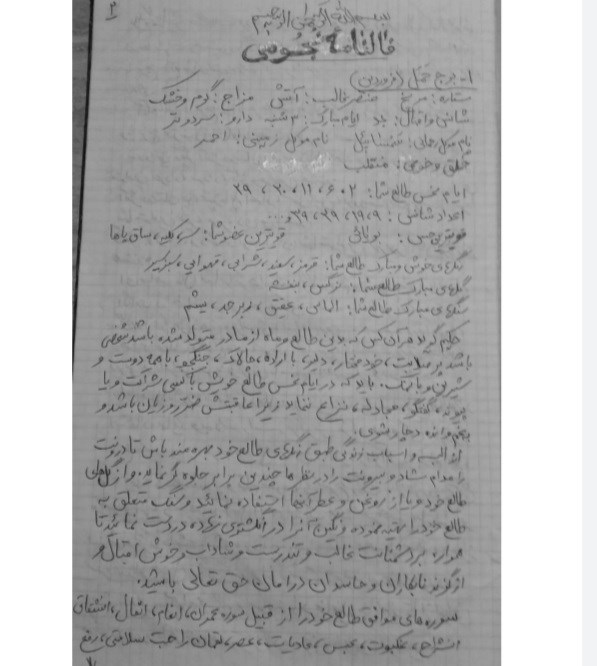 ۲
بسم الله الرحمن الرحیم
فالنامه نجومی
۱- برج حمل (فروردین)
ستاره: مریخ عنصر غالب: آتش مزاج: گرم و خشک
شانس و اقبال: باد ایام مبارک: ۳ شنبه دارو: سرد و تر
نام موکل زمینی: احمر
خلق و خوی: منقلب
ایام نحس طالع شما: ۲، ۶، ۱۱، ۳۰، ۳۹
اعداد شانس: ۹، ۱۹، ۳۹، ۳۹ و...
قویترین حس: بویائی قویترین عضو شما: سر، کلیه، ساق پاها
رنگهای خوش و مبارک طالع شما: قرمز، سفید، شرابی، قهوه‌ایی
گلهای مبارک طالع شما: نرگس، بنفشه
سنگهای مبارک طالع شما: الماس، عقیق، زبرجد، یشم
حکیم گوید هر آن کس که بدین طالع و ماه از مادر متولد شده باشد شخصی
باشد پر صلابت، خود مختار، دلیر، با اراده، چالاک، جنگجو، با همه دوست و
شیرین و با نمک. باید که در ایام نحس طالع خویش با کسی شراکت و یا
پیوند، گفتگو، مجادله، نزاع ننماید زیرا عاقبتش ضرر و زیان باشد و
به غم و اندوه دچار بشوی.
از البسه و اسباب زندگی طبق رنگهای طالع خود بهره مند باش تا درونت
را مدام شاد و بیرونت را در نظرها چندین برابر جلوه گر نماید. و از گلهای
طالع خود و یا از روغن و عطر آنها استفاده نمائید و سنگ متعلق به
طالع خود را تهیه نموده و نگین آنرا در انگشتری نهاده، در دست نمائید تا
هموار، بر دشمنات غالب و تندرست و شاداب و خوش اقبال و
از گزند نابکاران و حاسدان در امان حق تعالی باشید.
سوره های موافق طالع خود را از قبیل سوره عمران، انعام، انفال، انشقاق
انشراح، عنکبوت، عبس، عادیات، عصر، لقمان را جهت سلامتی، رفع